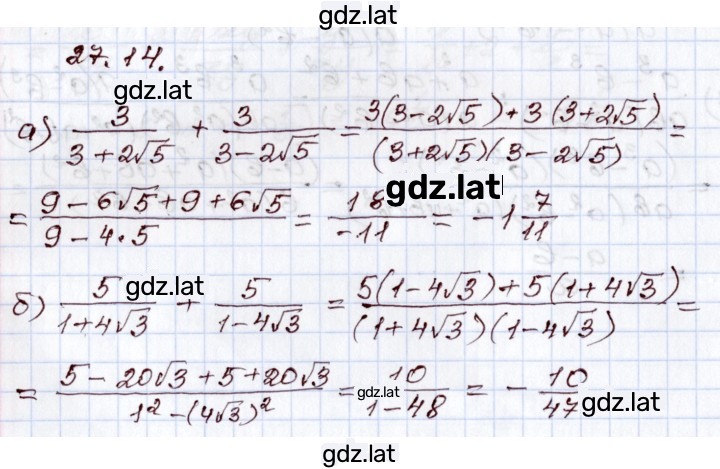 gdz.lat
27.14.
gdz.lat
а) 3/(3+2√5) + 3/(3-2√5) = (3(3-2√5)+3(3+2√5))/((3+2√5)(3-2√5)) =
gdz.lat
= (9-6√5+9+6√5)/(9-4·5) = 18/-11 = -1 7/11
gdz.lat
б) 5/(1+4√3) + 5/(1-4√3) = (5(1-4√3)+5(1+4√3))/((1+4√3)(1-4√3)) =
= (5-20√3+5+20√3)/(1²-(4√3)²) = 10/(1-48) = -10/47
gdz.lat
gdz.lat
gdz.lat